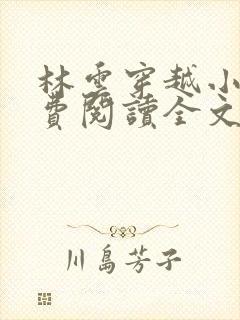 林雲穿越小
費閱讀全文
川島芳子